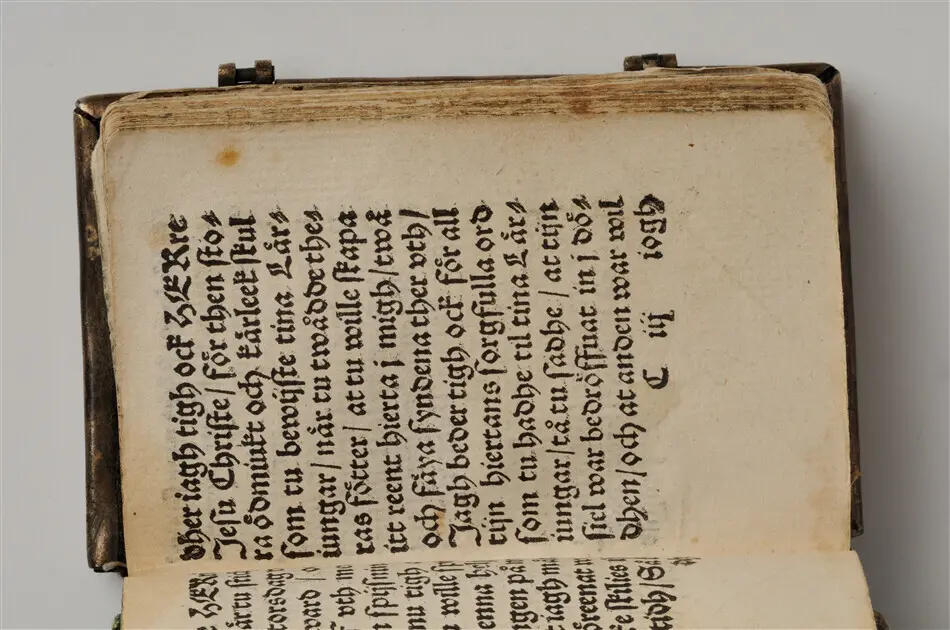 är tu
torsdag
ward /
vth
nu tigh
wille
iagh
tidh/
dher iagh tigh ock HERre
Jesu Christe/ för then sto⸗
ra ödmiukt och kärleek skul
som tu bewijste tina Lär⸗
iungar/ när tu twådde thes⸗
ras fötter/ at tu wille skapa
itt reent hierta j migh/ twå
och fäya syndena ther vth/
Jagh beder tigh ock för all
tijn hiertans sorgfulla ord
som tu hadhe til tina Lär⸗
iungar/ tå tu sadhe/ at tijn
siel war bedröffuat in j dö⸗
dhen/ och at anden war wil
C iij iogh